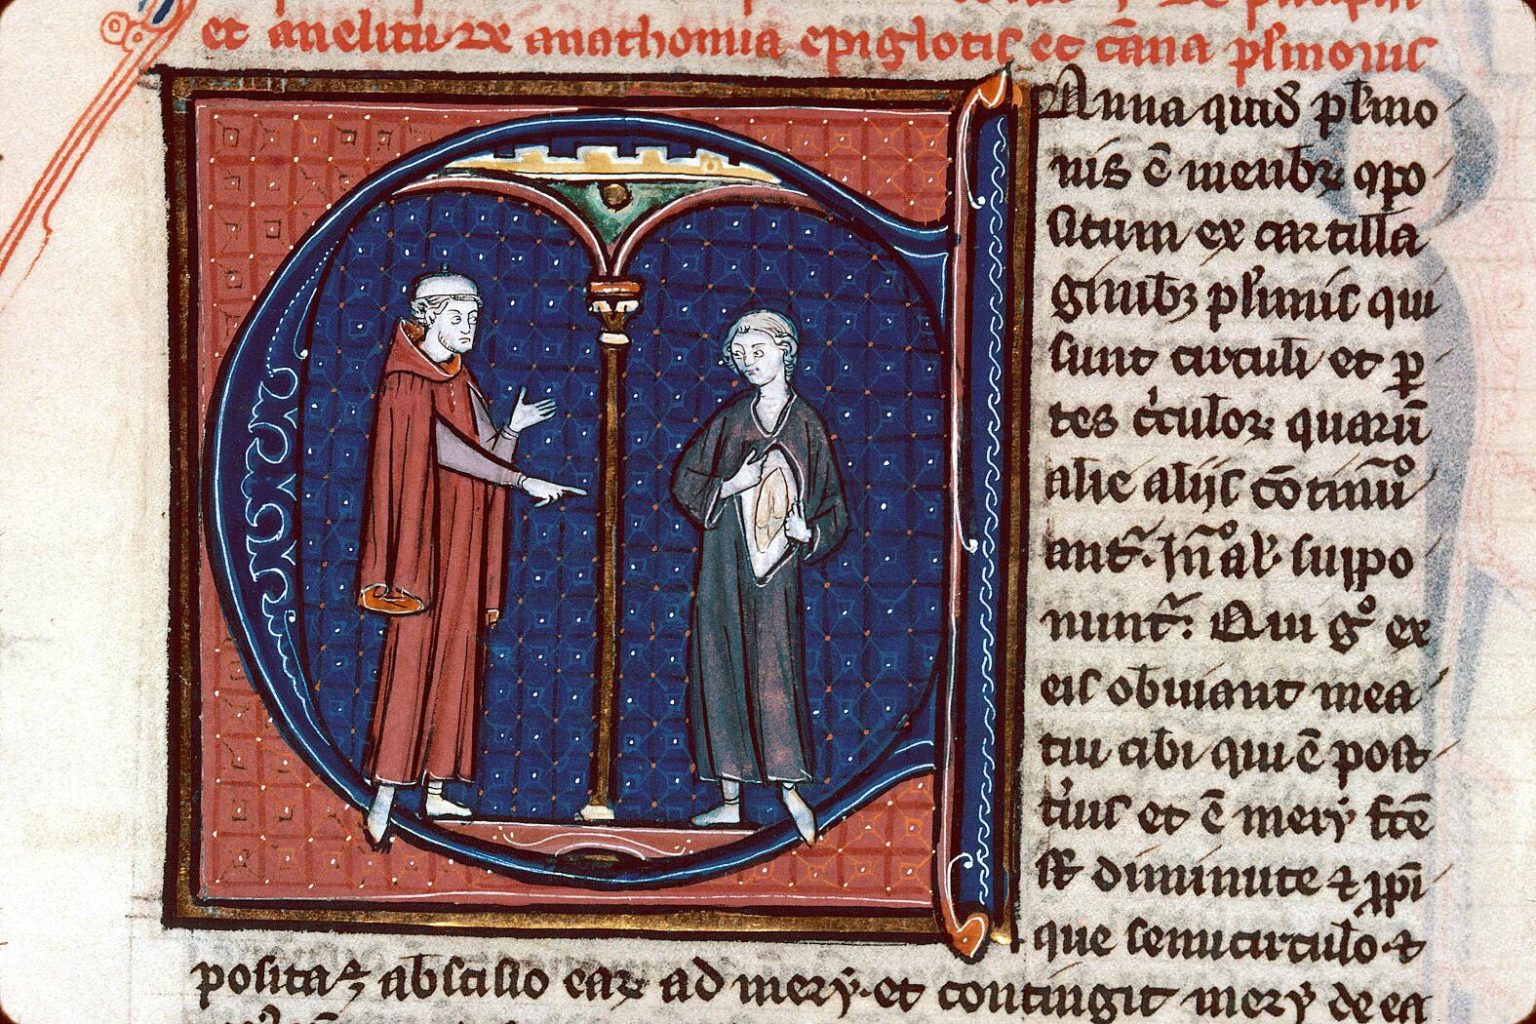 et anelitu. De anathomia epiglotis et cāna pl̄monis
Anna quid pl̄mo
nis ē menbꝝ ꝯpo
situm ex cartilla
ginibꝫ pl̄imis qui
sunt circuli et ꝑ
tes c̍culoꝝ quarū
alie aliis cōtinu
ant᷑. suppo
nunt᷑: Qui gͦ ex
eis obuiant mea
tui cibi qui ē post
t̍ius et ē mery fc̄e
st̄ diminute ⁊ ꝓpī
que semicirculo ⁊
posita ⁊ abscisio eaꝝ ad mery. et contingit mery de ea